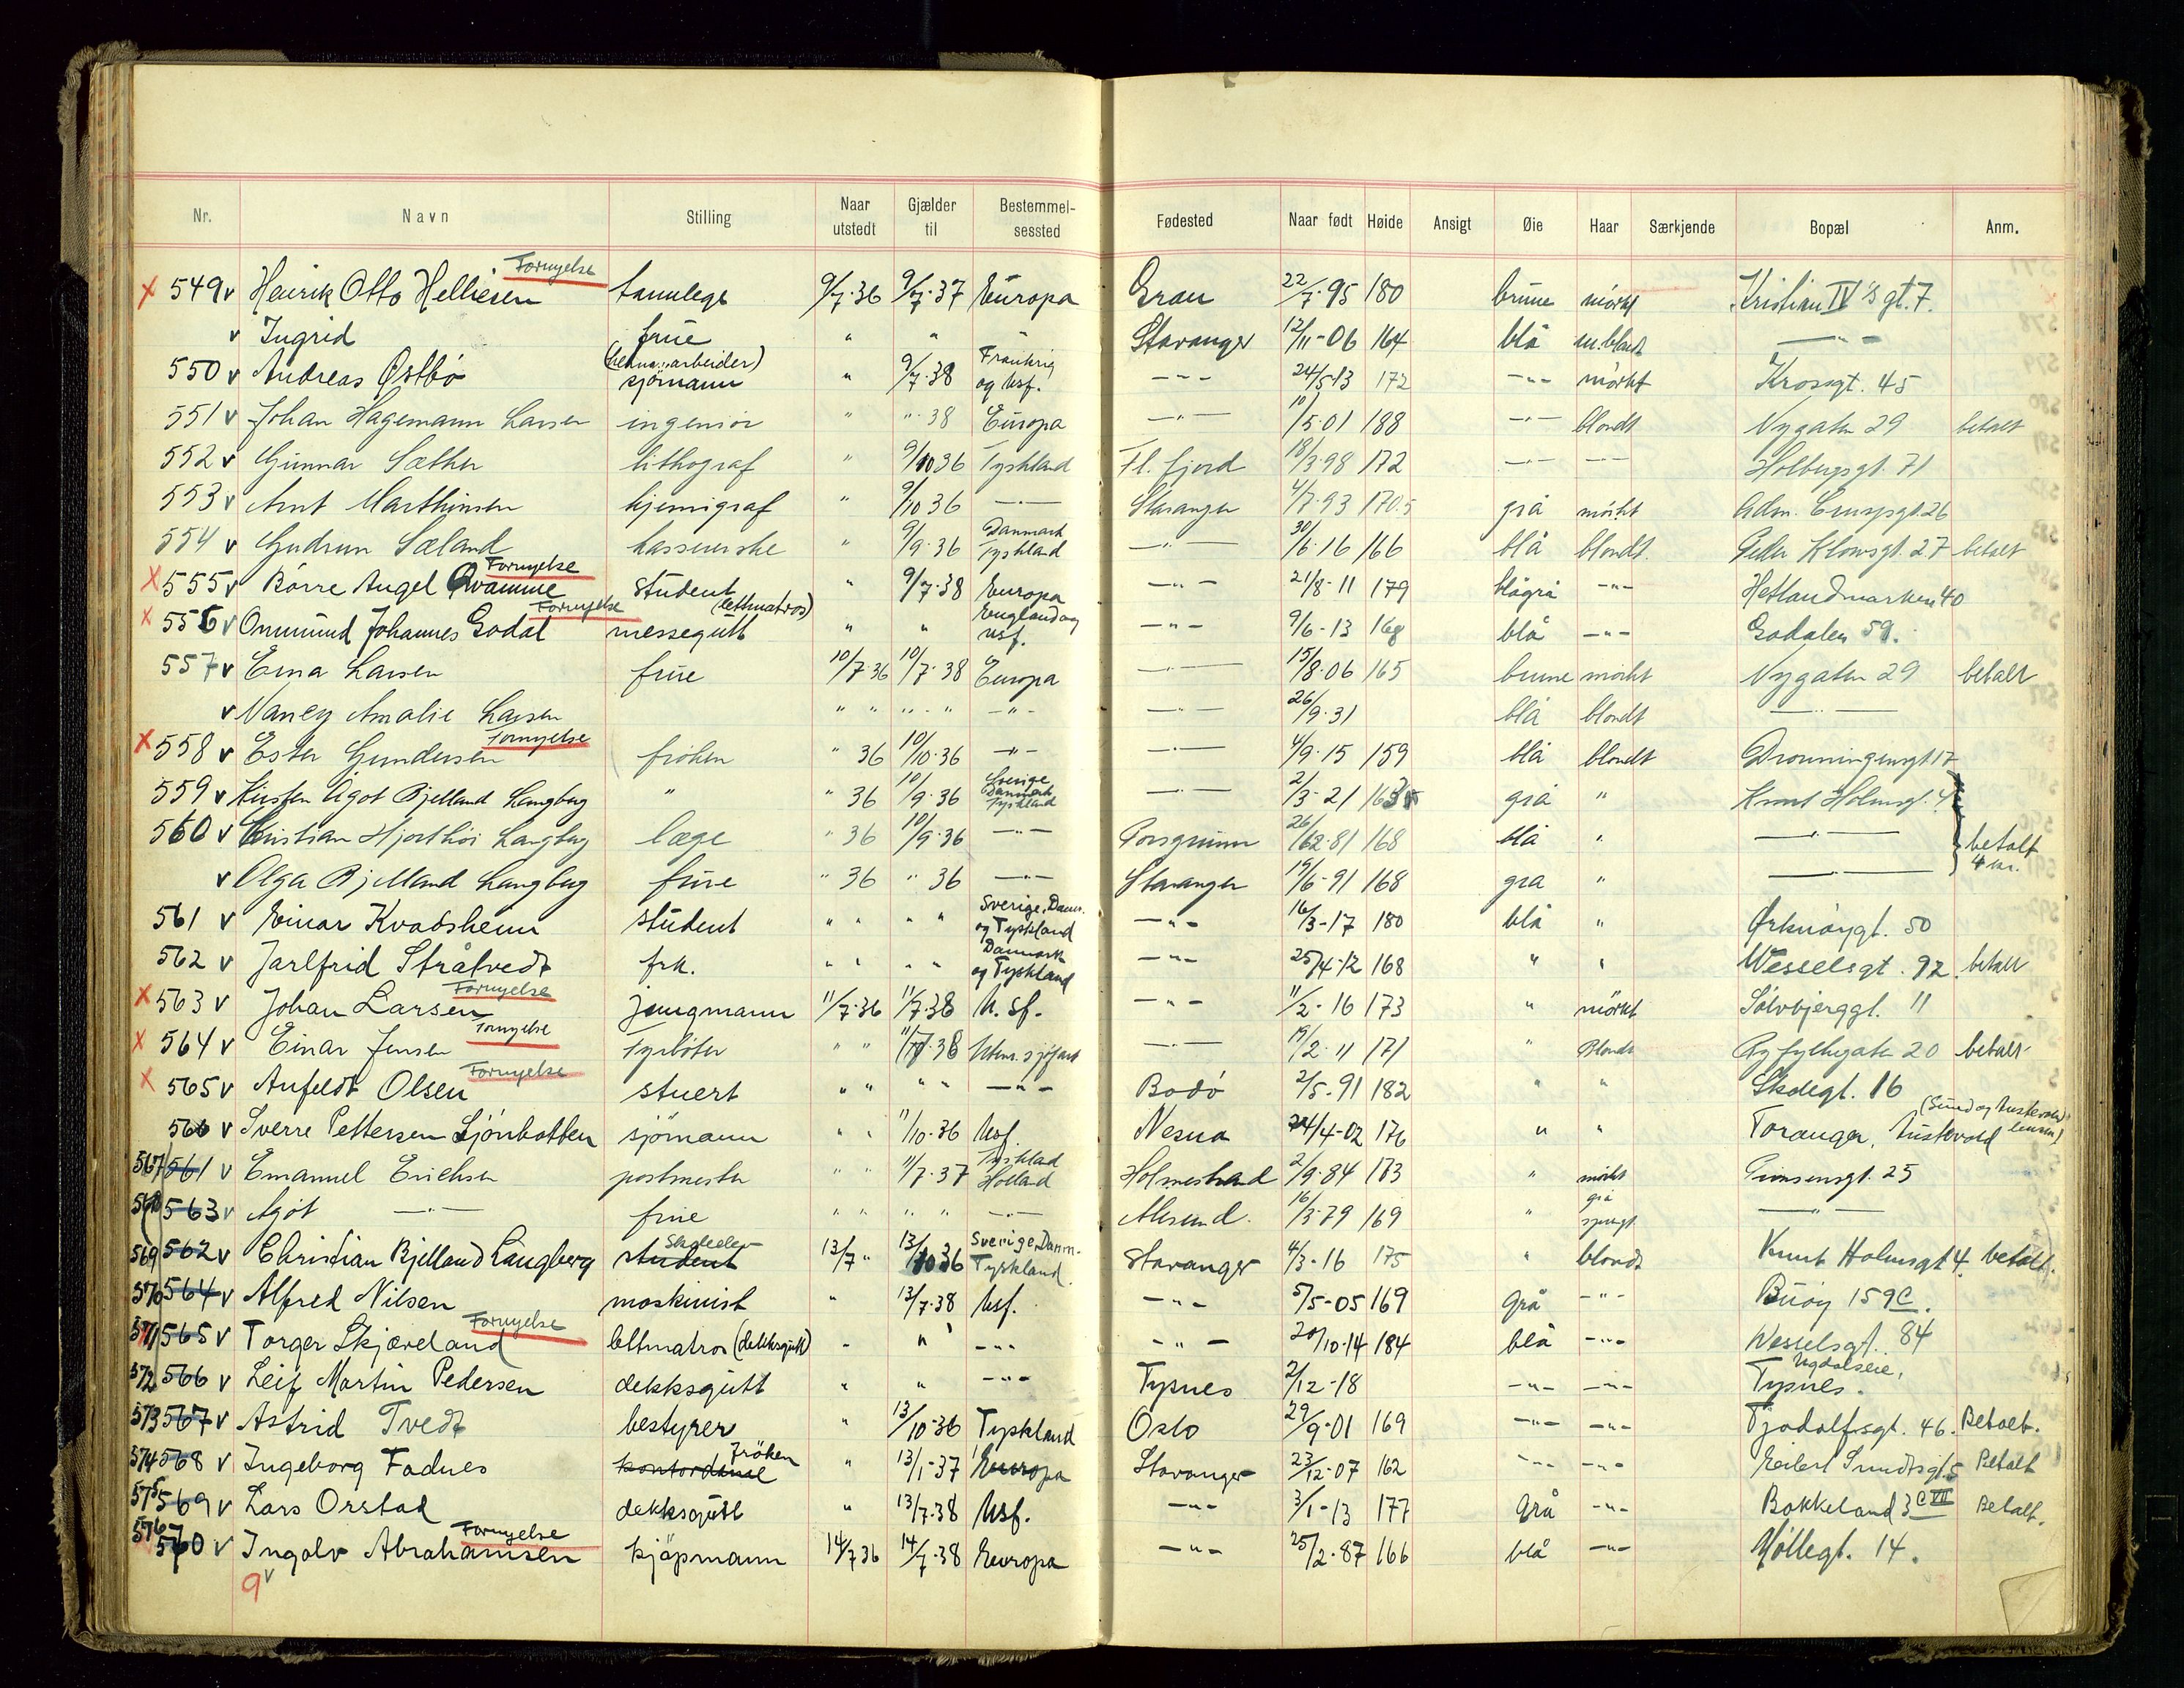 Nr. Navn Stilling Naar utstedt Gjælder til Bestemmelsessted Fødested Naar født Høide Ansigt Øie Haar Særkjende Bopæl Anm.
Fornyelse
x 549 v Henrik Otto Helliesen tannlege 9/7·36 9/7·37 Europa Gran 22/7·95 180 brune mörkt Kristian IV's gt. 7.
v Ingrid frue " " " Stavanger 12/11-06 164 blå m.blondt —"—
550 v Andreas Østbö (arbeider) sjömann " 9/7·38 Frankrig og Usf. —"— 24/5-13 172 —"— mörkt Krossgt. 45
551 v Johan Hagemann Larsen ingeniör " "·38 Europa —"— 10/5·01 188 —"— blondt Nygaten 29 betalt
552 v Gunnar Sæther lithograf " 9/10 36 Tyskland Fl. fjord 18/3·98 172 —"— —"— Holbergsgt. 71
553 v Arnt Marthinsen kjemigraf " 9/10 36 —"— Stavanger 4/7·93 170.5 grå mörkt Adm. Cruysgt. 26
554 v Gudrun Sæland kassererske " 9/9·36 Danmark Tyskland —"— 30/6·16 166 blå blondt Peder Klowsgt. 27 betalt
Fornyelse
x 555 v Börre Angel Qvamme student " 9/7·38 Europa —"— 21/8-11 179 blågrå —"— Hetlandmarken 40
Fornyelse
x 556 v Ommund Johannes Godal messegutt (lettmatros) " " England og Usf. —"— 9/6-13 168 blå —"— Godalen 59.
557 v Erna Larsen frue 10/7·36 10/7·38 Europa —"— 15/8·06 165 brune mörkt Nygaten 29 betalt
v Nancy Amalie Larsen " " " " —"— —"— 26/9·31 blå blondt —"—
Fornyelse
x 558 v Ester Gundersen fröken " 36 10/10·36 —"— —"— 4/9·15 159 blå blondt Dronningensgt 17
559 v Kirsten Ågot Bjelland Langberg " " 36 10/9·36 Sverige Danmark Tyskland —"— 2/3-21 grå " Knut Holmsgt. 4
560 v Kristian Hjorthöi Langberg læge " 36 10/9·36 —"— Porsgrunn 26/12·81 168 blå " —"— betalt 4 kr.
v Olga Bjelland Langberg frue " 36 " 36 —"— Stavanger 19/6-91 168 grå " —"—
561 v Einar Kvadsheim student " " " " Sverige, Danm. og Tyskland —"— 16/3-17 180 blå " Ørknöygt. 50
562 v Jarlfrid Stråtvedt frk. " " " " Danmark og Tyskland —"— 25/4-12 168 " " Wesselsgt. 92 betalt
Fornyelse
x 563 v Johan Larsen jungmann 11/7·36 11/7·38 U. sf. —"— 11/2-16 173 " mörkt Sölvbjerggt. 11
Fornyelse
x 564 v Einar Jensen Fyrböter " " 11/7·38 Utenr. sjöfart —"— 19/2·11 171 " Blondt Ryfylkegaten 20 betalt
Fornyelse
x 565 v Anfeldt Olsen stuert " " " " —"— Bodö 2/5-91 182 " " Skolegt. 16
566 v Sverre Pettersen Sjönbotten sjömann " " 11/10·36 Usf. Nesna 24/4-02 176 " " Toranger, Austevold (Sund og Austevold lensm.)
567 561 v Emanuel Erichsen postmester " " 11/7·37 Tyskland Holland Holmestrand 2/9·84 173 " mörkt Gimsensgt. 25
568 563 v Agöt —"— frue " " " " —"— Ålesund. 16/3-79 169 " grå sprengt —"—
569 562 v Christian Bjelland Langberg student Skoleelev 13/7 " 13/10 36 Sverige, Danm. Tyskland. Stavanger 4/3-16 175 " blondt Knut Holmsgt 4. betalt.
570 564 v Alfred Nilsen maskinist " 13/7·38 Usf. —"— 5/5-05 169 grå —"— Buöy 159 C.
Fornyelse
571 565 v Torger Skjæveland lettmatros (dekksgutt) " " —"— —"— 20/10·14 184 blå —"— Wesselsgt. 84
572 566 v Leif Martin Pedersen dekksgutt " " —"— Tysnes 2/12-18 —"— —"— Ugdalseie, Tysnes.
573 567 v Astrid Tvedt bestyrer " 13/10-36 Tyskland Oslo 29/9-01 169 —"— —"— Tjodolfsgt. 46. Betalt.
574 568 v Ingeborg Fadnes kontordame fröken " 13/1-37 Europa Stavanger 23/12-07 162 —"— —"— Eilert Sundtsgt. 5 Betalt
575 569 v Lars Orstad dekksgutt " 13/7·38 Usf. —"— 3/1-13 177 grå —"— Bakkeland 3 C VII Betalt.
Fornyelse
576 570 v Ingolv Abrahamsen kjöpmann 14/7 36 14/7·38 Europa —"— 25/2·87 166 blå —"— Möllegt. 14.
9 v